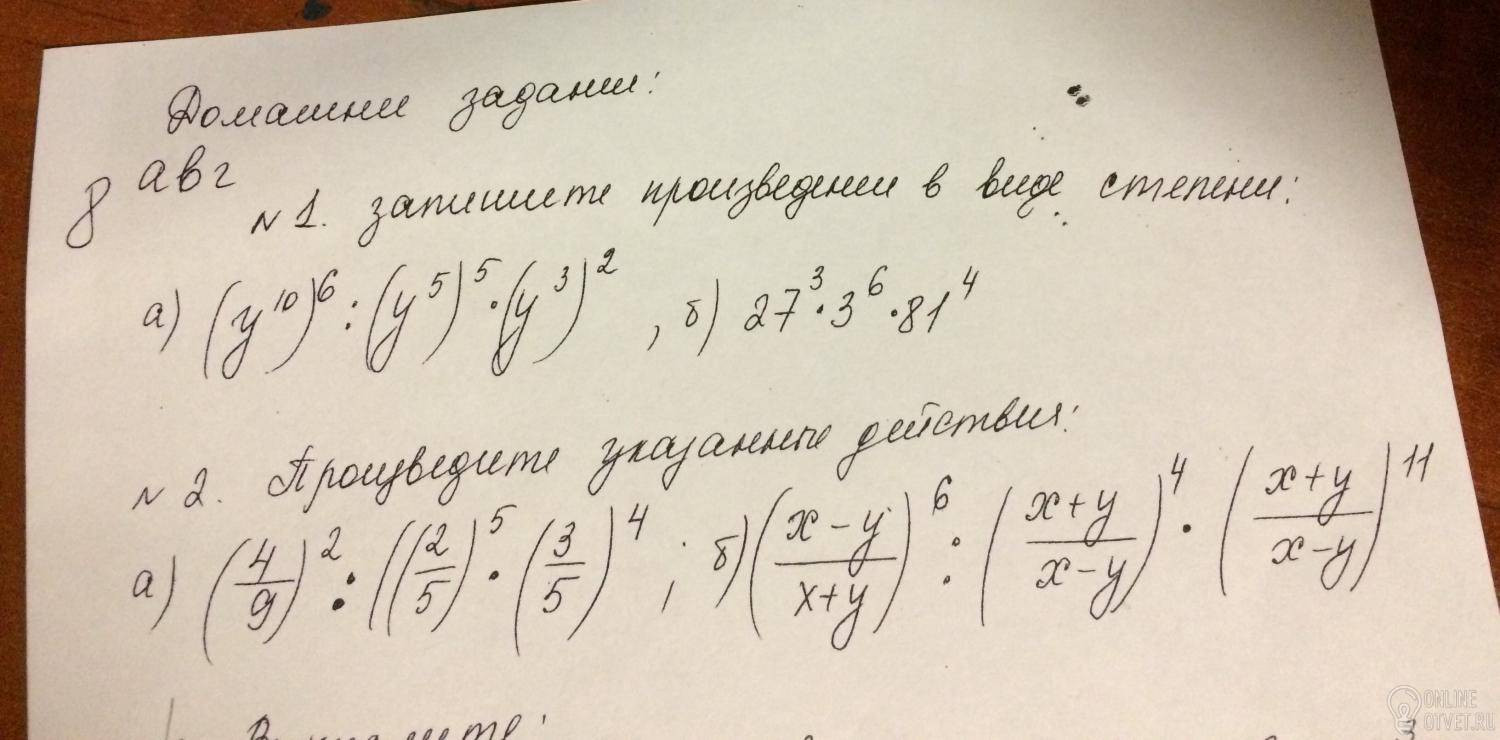 Домашни задании:
8 авг
№1. запишите произведении в виде степени:
а) (y¹⁰)⁶ : (y⁵)⁵ · (y³)², б) 27³ · 3⁶ · 81⁴
№2. Произведите указанные действия:
а) (4/9)² : ((2/5)⁵ · (3/5)⁴ ; б) ((x-y)/(x+y))⁶ : ((x+y)/(x-y))⁴ · ((x+y)/(x-y))¹¹
ONLINE
OTVET.RU